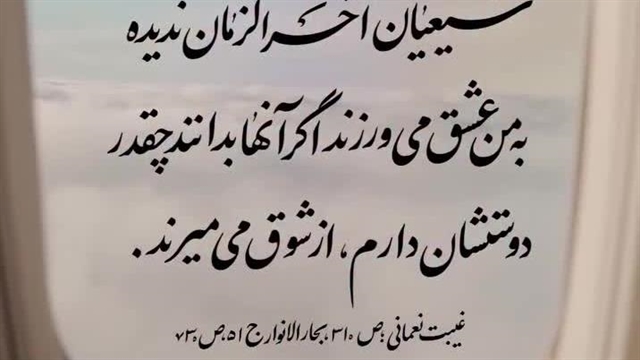 شیعیان آخرالزمان ندیده
به من عشق می ورزند اگر آنها بدانند چقدر
دوستشان دارم، از شوق می میرند.
غیبت نعمانی؛ ص ۳۱۰، بحارالانوار ج ۵۱، ص ۷۳۰